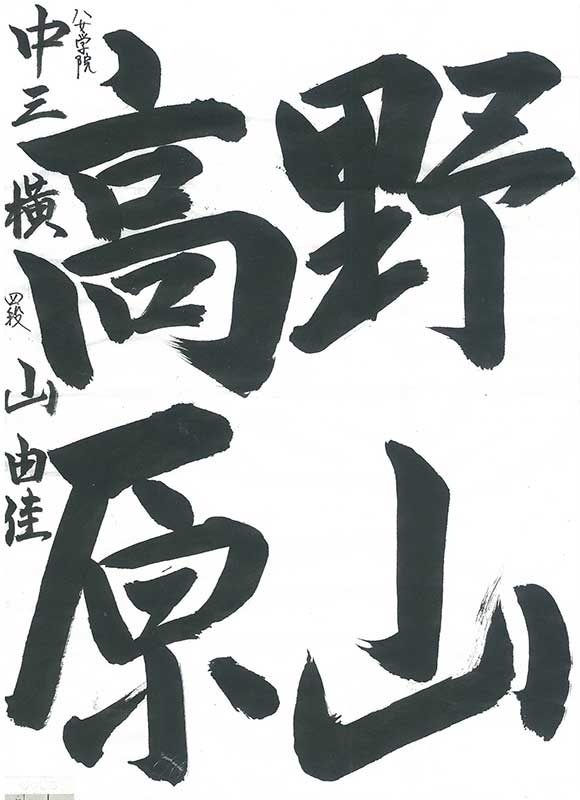 野山
高原
八女学院
中三 横山由佳
四段